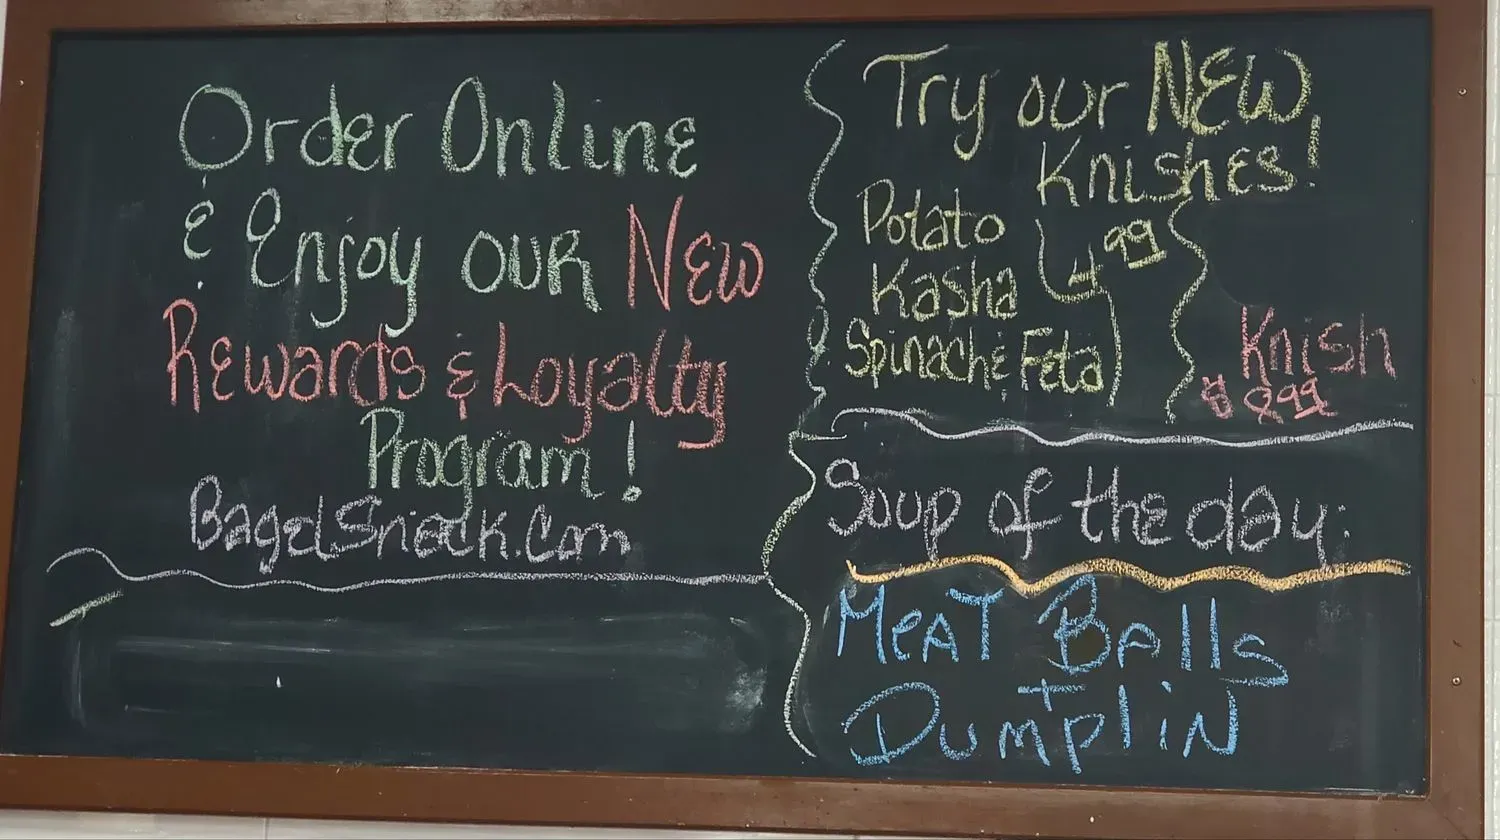 Order Online
& Enjoy our New
Rewards & Loyalty
Program!
BagelSnack.Com
Try our New
Knishes!
Potato
Kasha
Spinach & Feta
4.99
Knish
Soup of the day:
Meat Balls
+
Dumplin